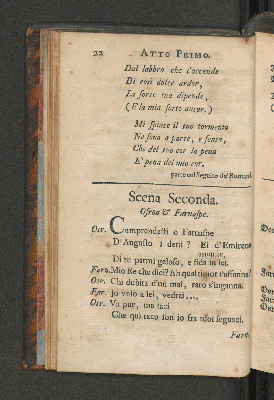 22 ATTO PRIMO.
Dal labbro che t'accende
Di così dolce ardor,
La sorte tua dipende,
(E la mia sorte ancor.)
Mi spiace il tuo tormento
Ne sono a parte, e sento,
Che del tuo cor la pena
E' pena del mio cor.
parte col Seguito de' Romani.
Scena Seconda.
Osroa & Farnaspe.
Osr. Comprendesti o Farnaspe
D'Augusto i detti? Ei d'Emirena
amante,
Di te parmi geloso, e fida in lei.
Farn. Mio Re che dici? Ah qual timor t'affanna?
Osr. Chi dubita d'un mal, raro s'inganna.
Far. Io volo a lei, vedrò....
Osr. Va pur, ma taci
Che qui teco son io fra tuoi seguaci.
Farn.